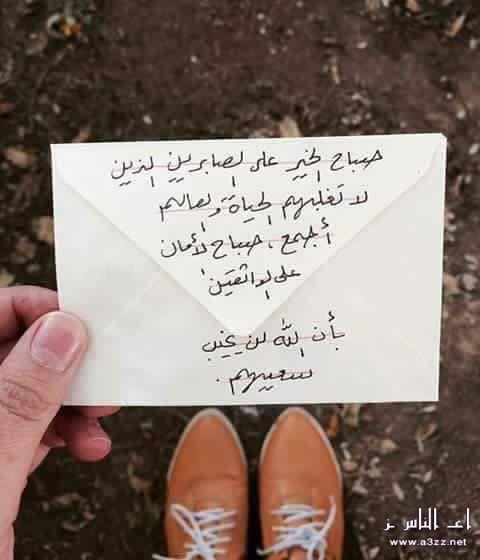 صباح الخير على الصابرين الذين
لا تغلبهم الحياة والعالم
أجمع ، صباح الأمان
على الواثقين
بأن الله لن يخيب
سعيهم .
اعـ الناس ـز
www.a3zz.net